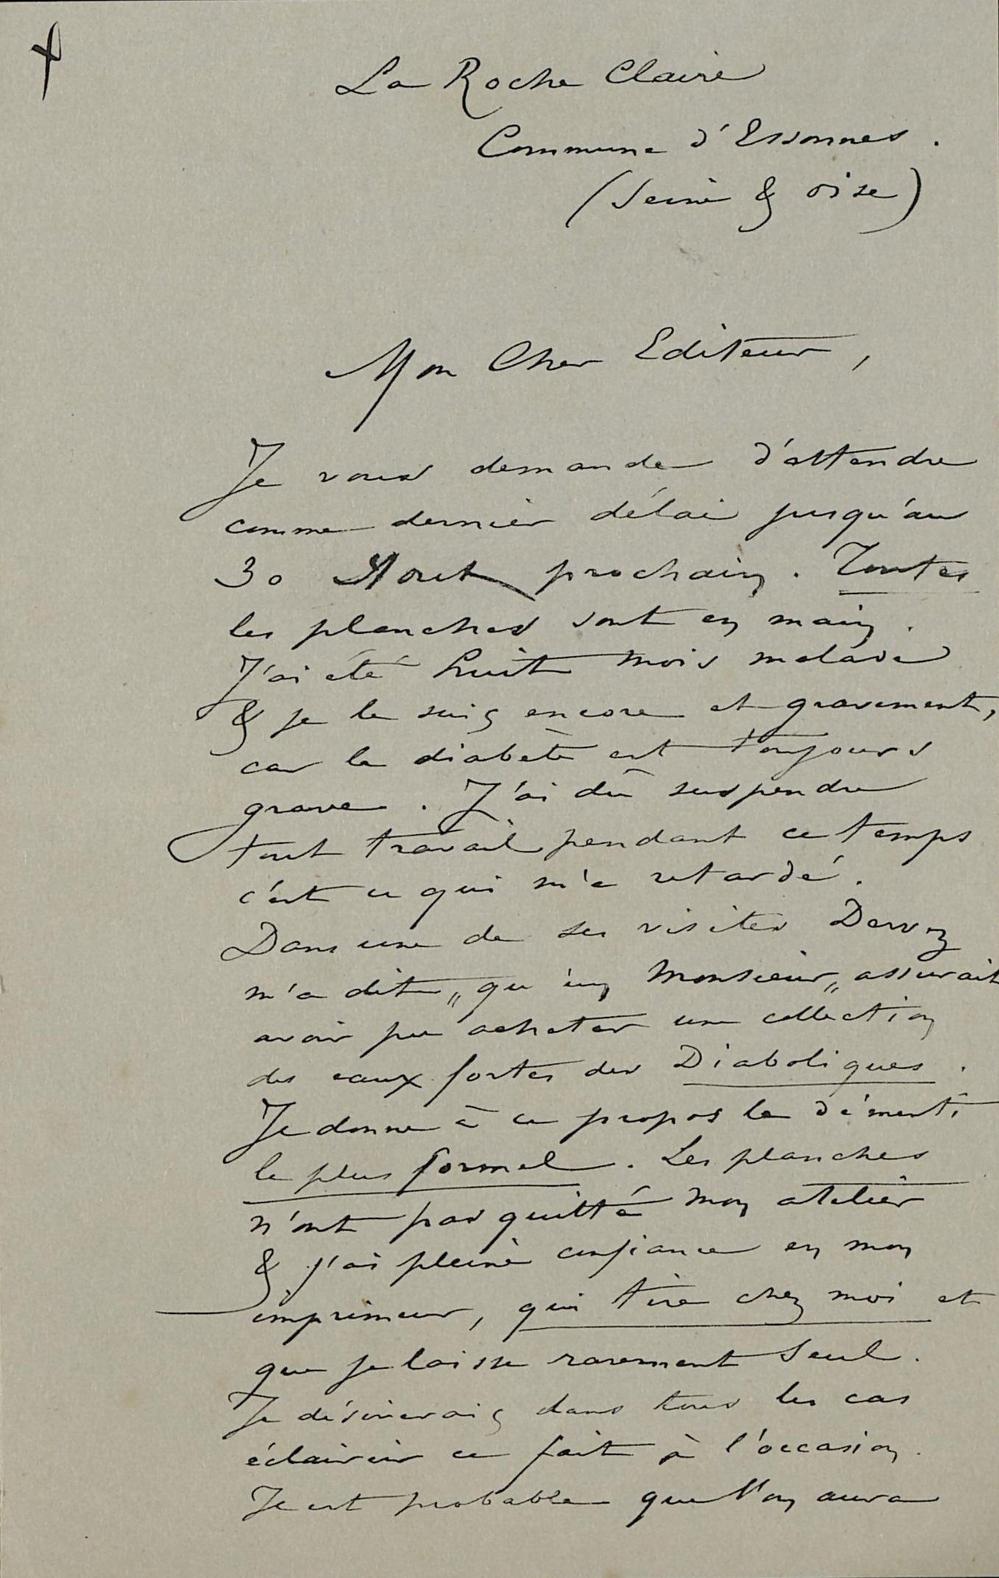 La Roche Claire
Commune d'Essonnes.
(Seine & oise)
Mon Cher Editeur,
Je vous demande d'attendre
comme dernier délai jusqu'au
30 Aout prochain. Toutes
les planches sont en main.
J'ai été huit mois malade
& je le suis encore et gravement,
car le diabète est toujours
grave. J'ai dû suspendre
tout travail pendant ce temps
c'est ce qui m'a retardé.
Dans une de ses visites Dervez
m'a dit „qu'un Monsieur„ assurait
avoir pu acheter une collection
des eaux fortes des Diaboliques.
Je donne à ce propos le démenti
le plus formel. Les planches
n'ont pas quitté mon atelier
& j'ai pleine confiance en mon
imprimeur, qui tire chez moi et
que je laisse rarement seul.
Je désirerais dans tous les cas
éclaircir ce fait à l'occasion.
Il est probable que l'on aura